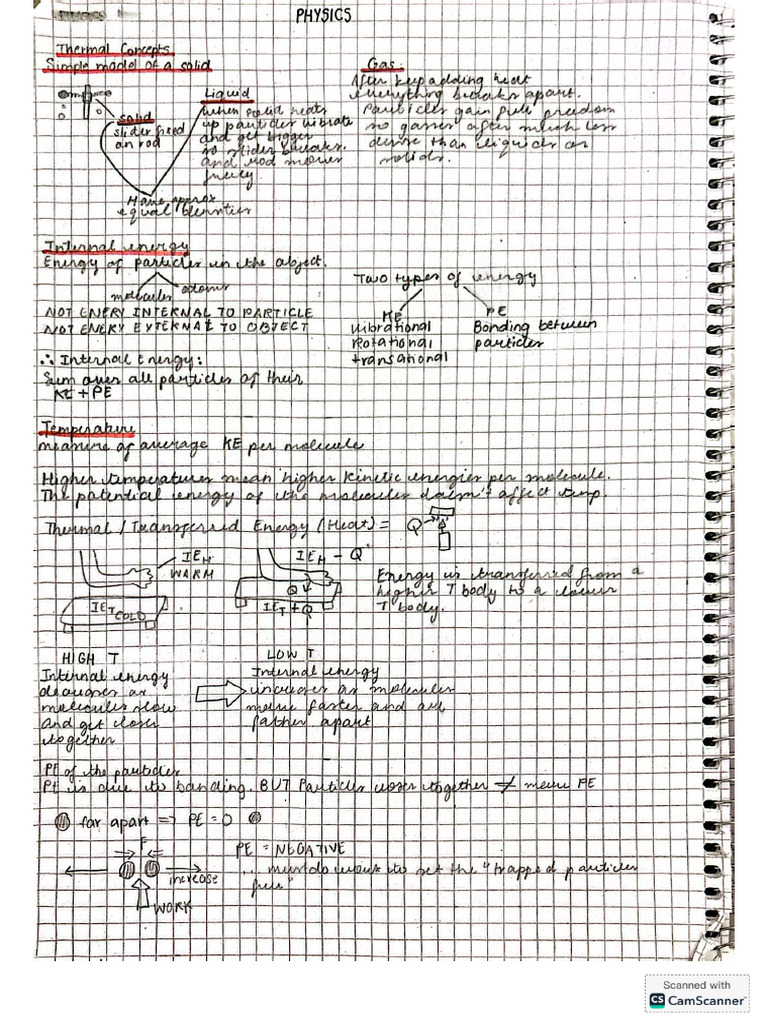 PHYSICS
PHYSICS
Thermal Concepts
Simple model of a solid
solid
slider fixed
on rod
Liquid
when solid heats
up particles vibrate
and get bigger
so slider breaks.
and rod moves
freely.
Have approx
equal densities
Gas
After keep adding heat
everything breaks apart.
Particles gain full freedom
so gasses after much less
dense than liquids or
solids.
Internal energy
Energy of particles in the object.
molecules
atoms
NOT ENERY INTERNAL TO PARTICLE
NOT ENERY EXTERNAL TO OBJECT
∴ Internal Energy:
Sum over all particles of their
KE + PE
Two types of energy
KE
Vibrational
Rotational
transational
PE
Bonding between
particles
Temperature
measure of average KE per molecule
Higher temperatures mean higher kinetic energies per molecule.
The potential energy of the molecules doesn't affect temp.
Thermal / Transferred Energy (Heat) = Q
IE_H
WARM
IE_T COLD
IE_H - Q
Q
IE_T + Q
Energy is transferred from a
higher T body to a lower
T body.
HIGH T
Internal energy
decreases as
molecules slow
and get closer
together
LOW T
Internal energy
increases as molecules
move faster and are
father apart
PE of the particles
PE is due to bonding. BUT Particles closer together ≠ more PE
far apart => PE = 0
F
increase
WORK
PE = NEGATIVE
∴ must do work to set the "trapped particles
free"
Scanned with
CS CamScanner